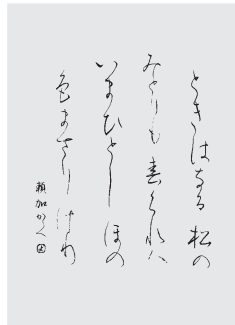 ときはなる松の
みどりも春くれば
いまひとしほの
色まさりけり
頼加かく